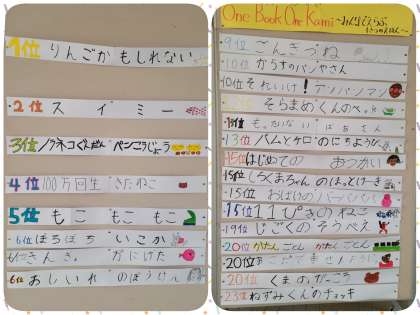 1位 りんごかもしれない
2位 スイミー
3位 ノラネコぐんだん パンこうじょう
4位 100万回生きたねこ
5位 もこ もこもこ
6位 ぼちぼち いこか
6位 にげた
6位 おしいれのぼうけん
One Book One Kami
9位 ごんぎつね
10位 からすのパンやさん
10位 それいけ! アンパンマン
そらまめくんのべっ
もったいないばあさん
13位 バムとケロのにちようび
15位 はじめての おつかい
15位 しろくまちゃんのほっとけーき
15位 おばけのバーバパパ
15位 11ぴきのねこ
19位 じごくのそうべえ
20位 がたん ごとん がたん ごとん
20位 まどから
20位 くまのがっこう
23位 ねずみくんのチョッキ